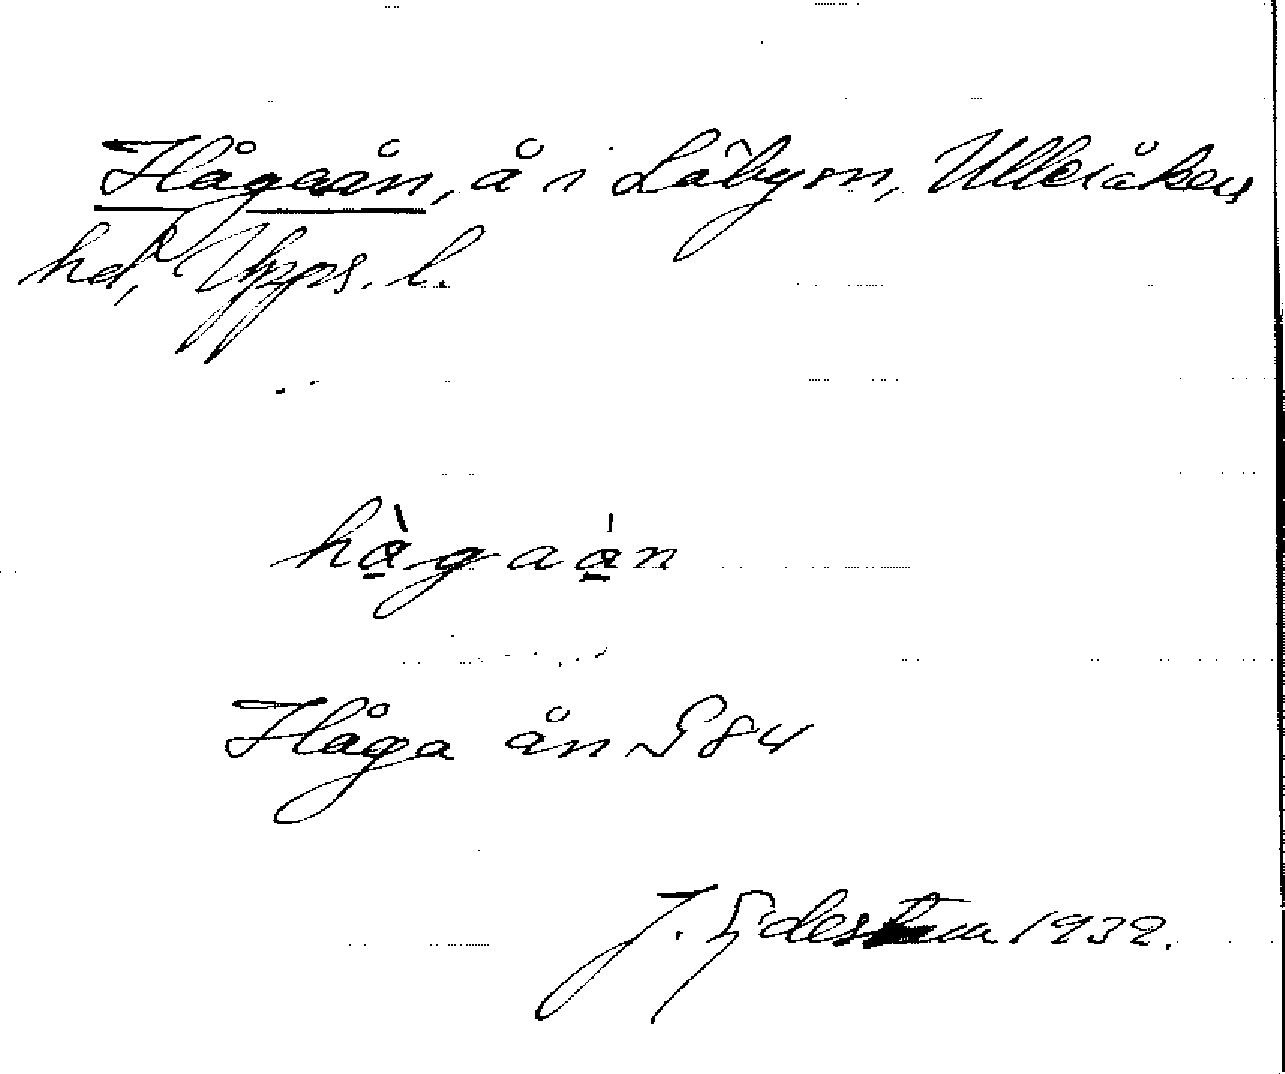 Hågaån, å i Läby sn, Ulleråkers
hd, Upps. l.
hàgaán
Håga ån S 84
J. Edestam 1932.